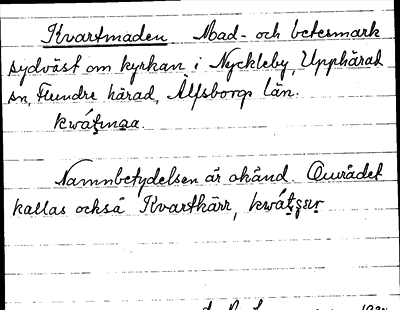 Kvartmaden Mad- och betesmark
sydväst om kyrkan i Nyckleby, Upphärad
sn, Flundre härad, Älfsborgs län.
Namnbetydelsen är okänd. Området
kallas också Kvartkärr,